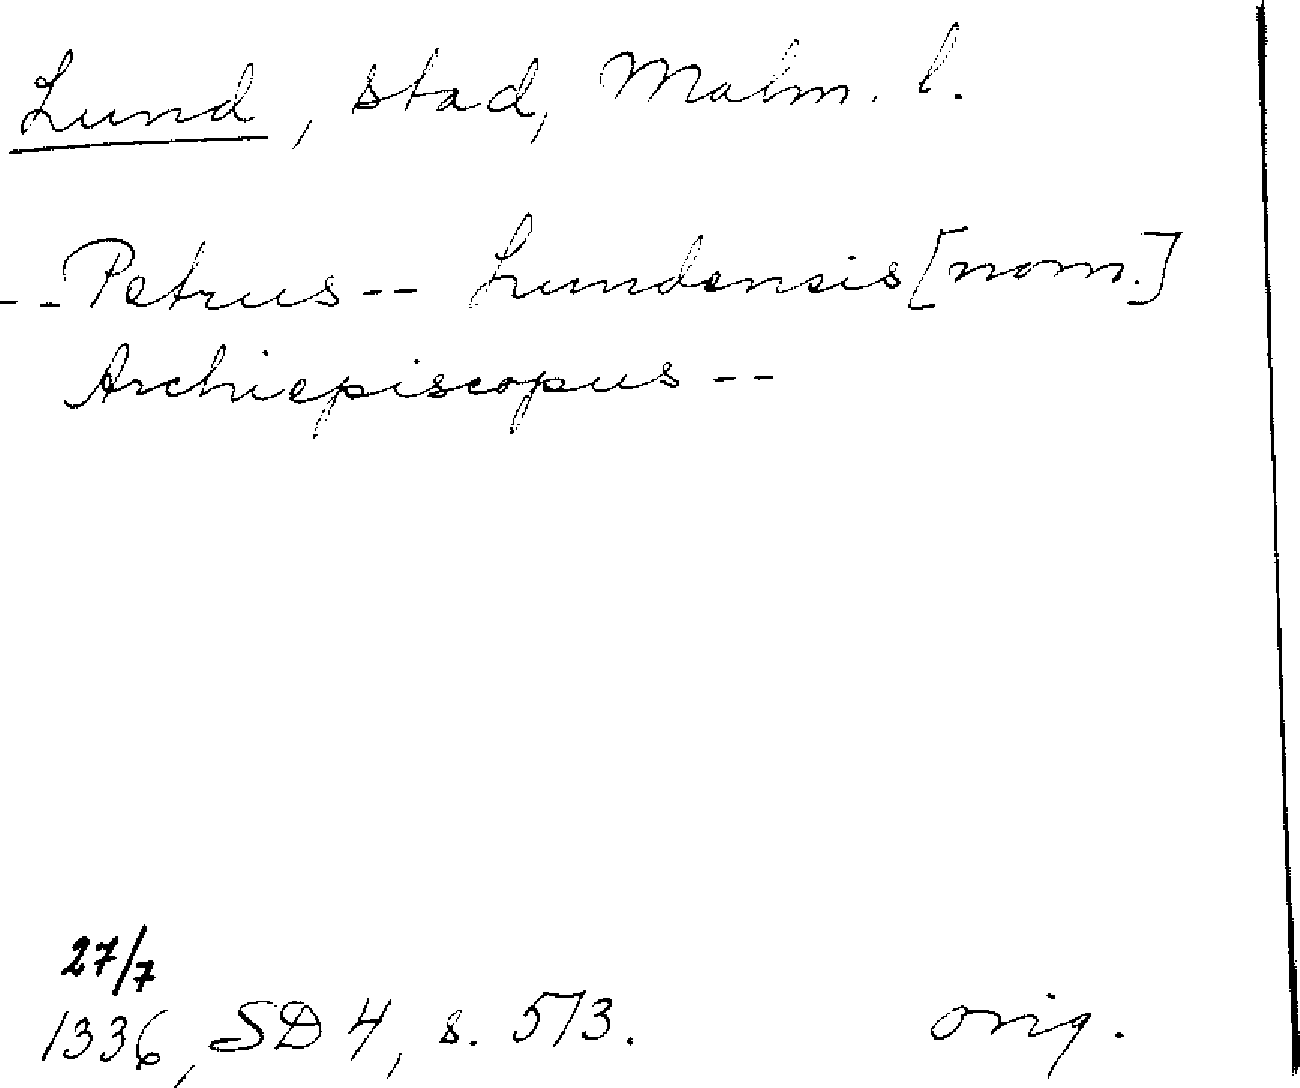 Lund, stad, Malm. l.
-- Petrus -- Lundensis [nom.]
Archiepiscopus --
27/7
1336, SD 4, s. 513.
orig.